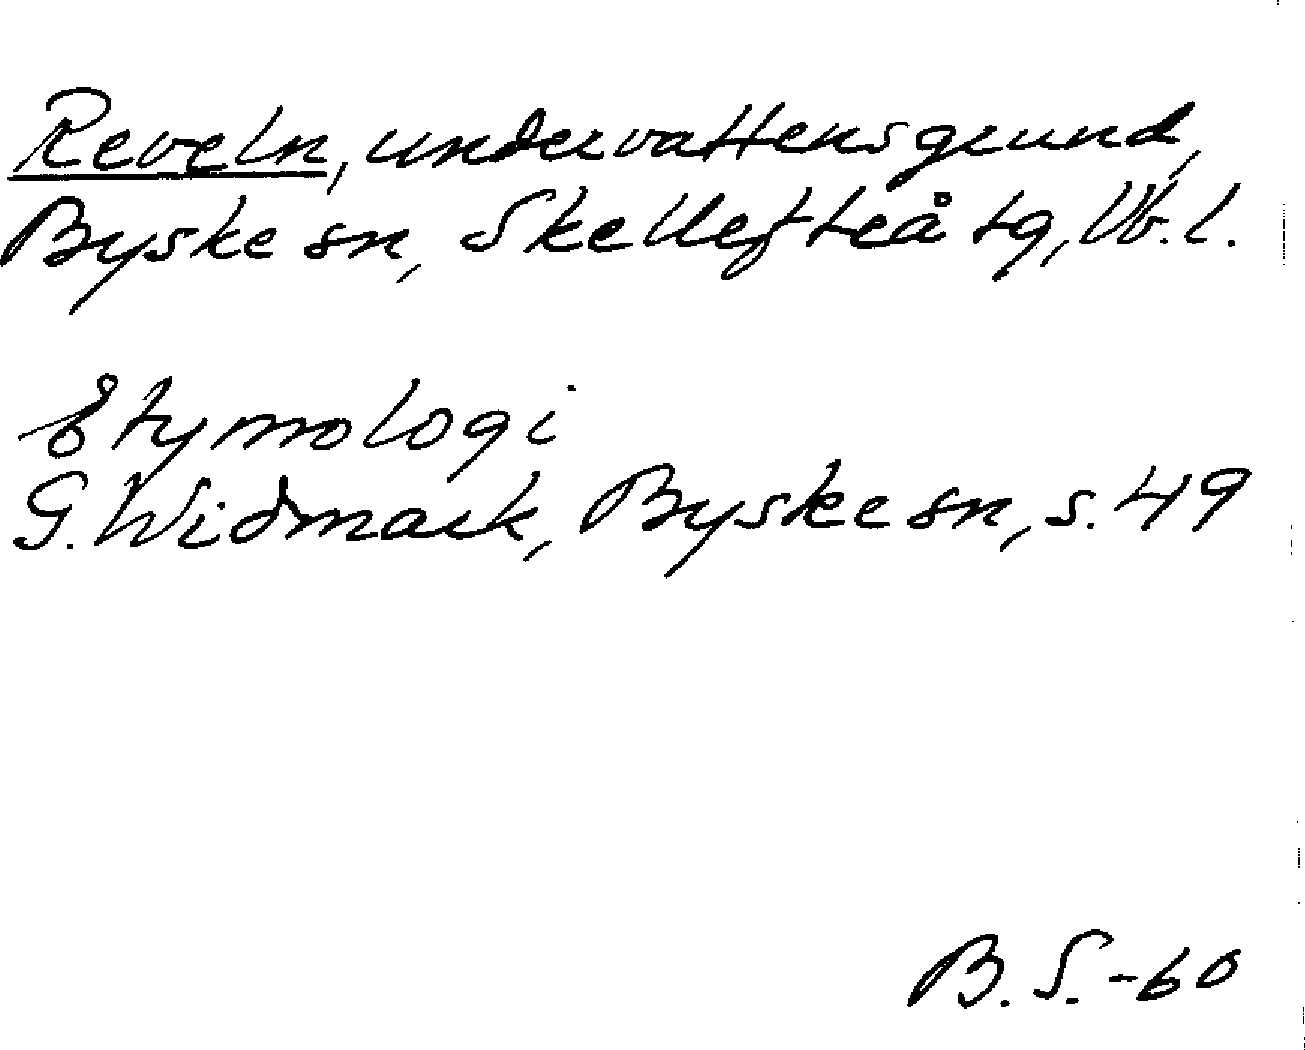 Reveln, undervattensgrund,
Byske sn, Skellefteå tg, Vb.l.
Etymologi
G. Widmark, Byske sn, s. 49
B.S.-60